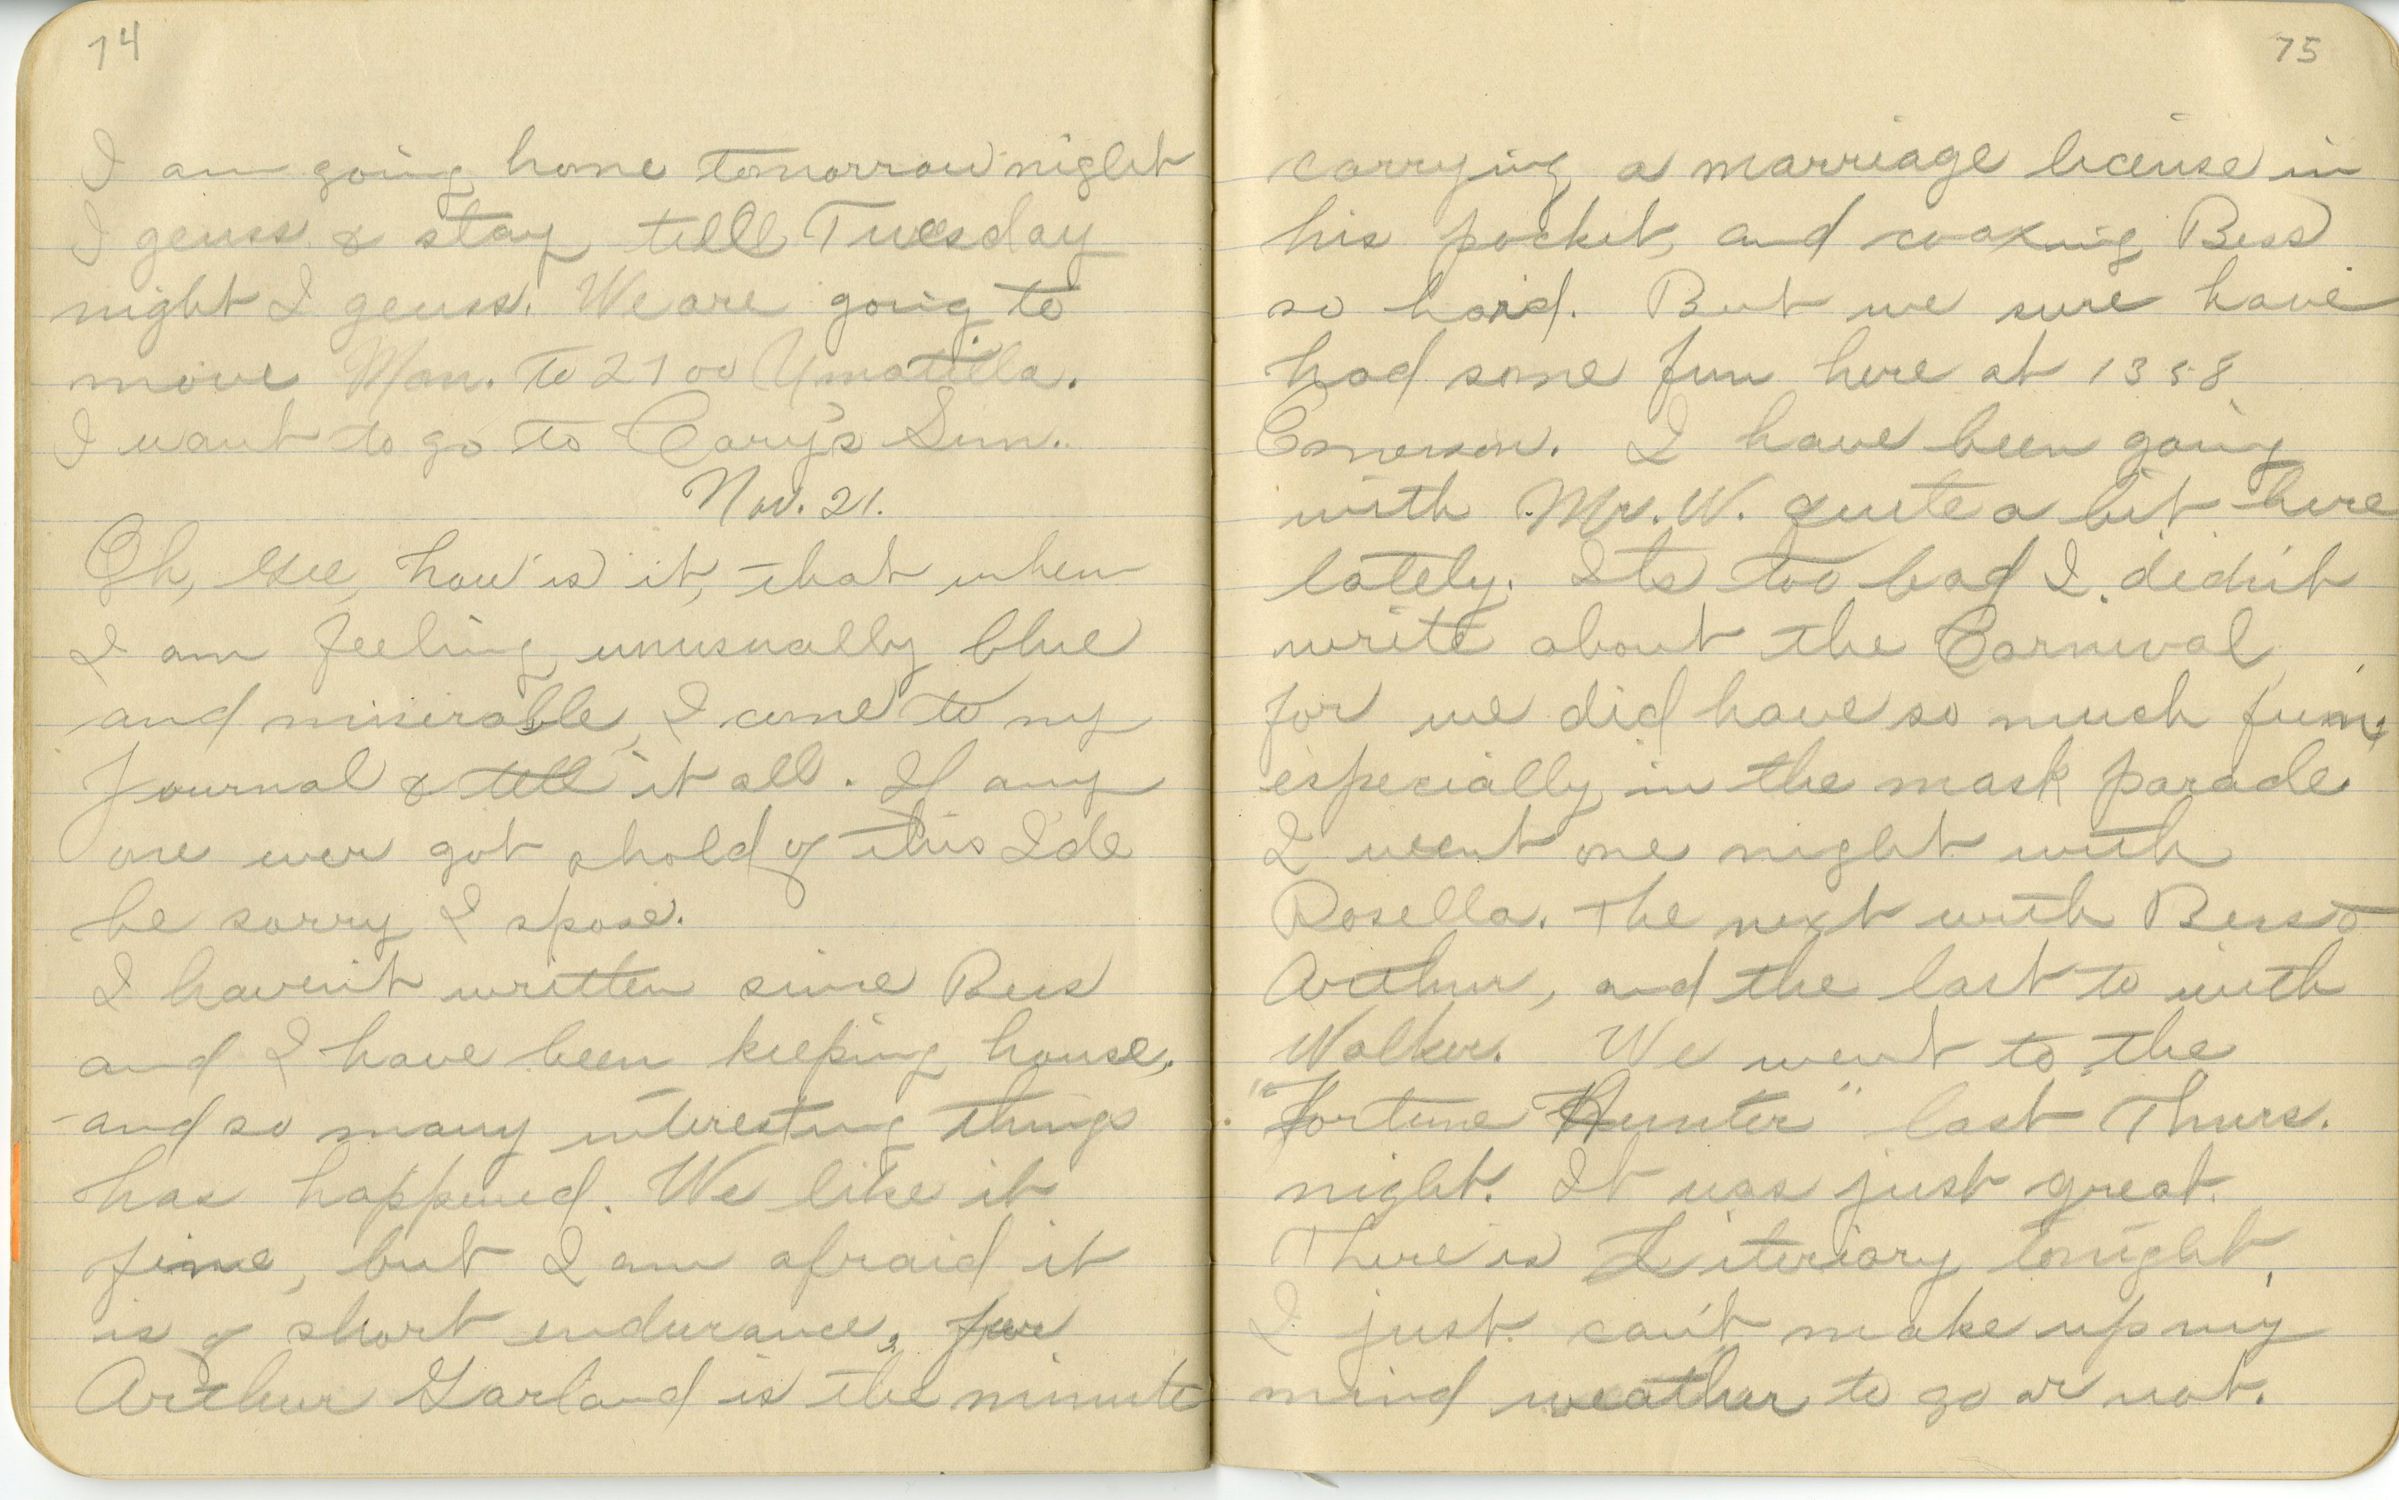 74
I am going home tomorrow night
I genss & stay tell Tuesday
night I genss. We are going to
move Mon. to 2100 Umatilla.
I want to go to Cary's Sun.
Nov. 21.
Oh, gee, how is it, that when
I am feeling unusually blue
and miserable, I come to my
Journal & tell it all. If any
one ever got ahold of this I'de
be sorry I spose.
I haven't written since Bess
and I have been keeping house,
and so many interesting things
has happened. We like it
fine, but I am afraid it
is of short endurance, for
Arthur Garland is the minute
75
carrying a marriage license in
his pocket, and coaxing Bess
so hard. But we sure have
had some fun here at 1358
Emerson. I have been going
with Mr. W. quite a bit here
lately. Its too bad I didn't
write about the Carnival
for we did have so much fun,
especially in the mask parade
I went one night with
Rosella. The next with Bess &
Arthur, and the last to with
Walker. We went to the
"Fortune Hunter" last Thurs.
night. It was just great.
There is Literiary tonight,
I just can't make up my
mind weather to go or not.